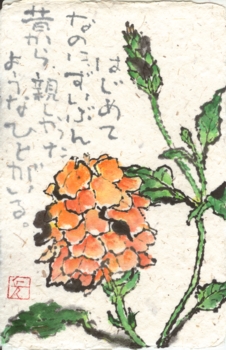 はじめて
なのにずいぶん
昔から親しかった
ようなひとがいる。